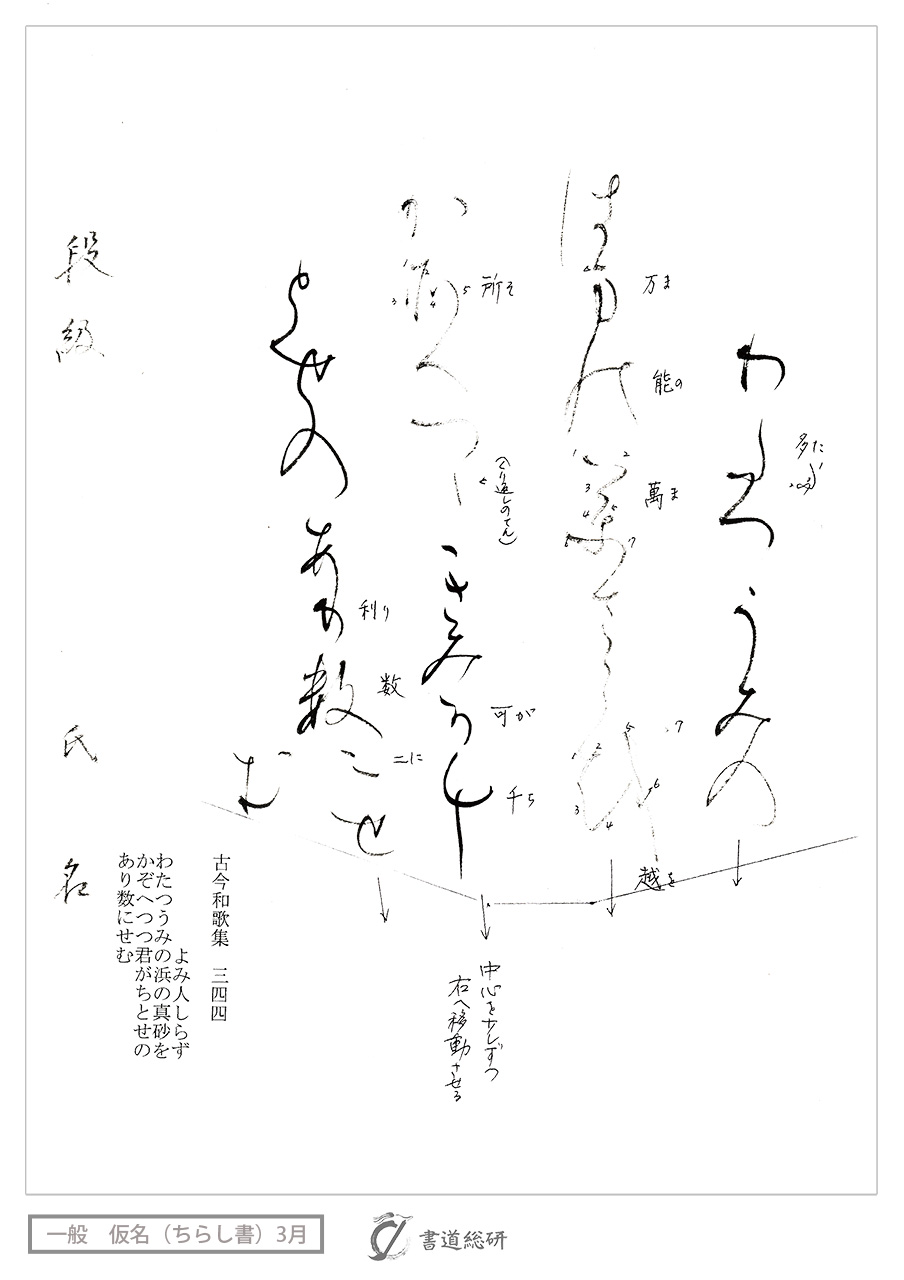 わ多つうみの
多た
は万能萬さこ越
万ま
能の
萬ま
越を
か所へつゝきみ可千
所そ
(くり返しのてん)
可が
千ち
とせのあ利数
利り
数
二せ
二に
む
中心を少しずつ
右へ移動させる
古今和歌集 三四四
よみ人しらず
わたつうみの浜の真砂を
かぞへつつ君がちとせの
あり数にせむ
段級 氏名
一般 仮名(ちらし書)3月
書道総研